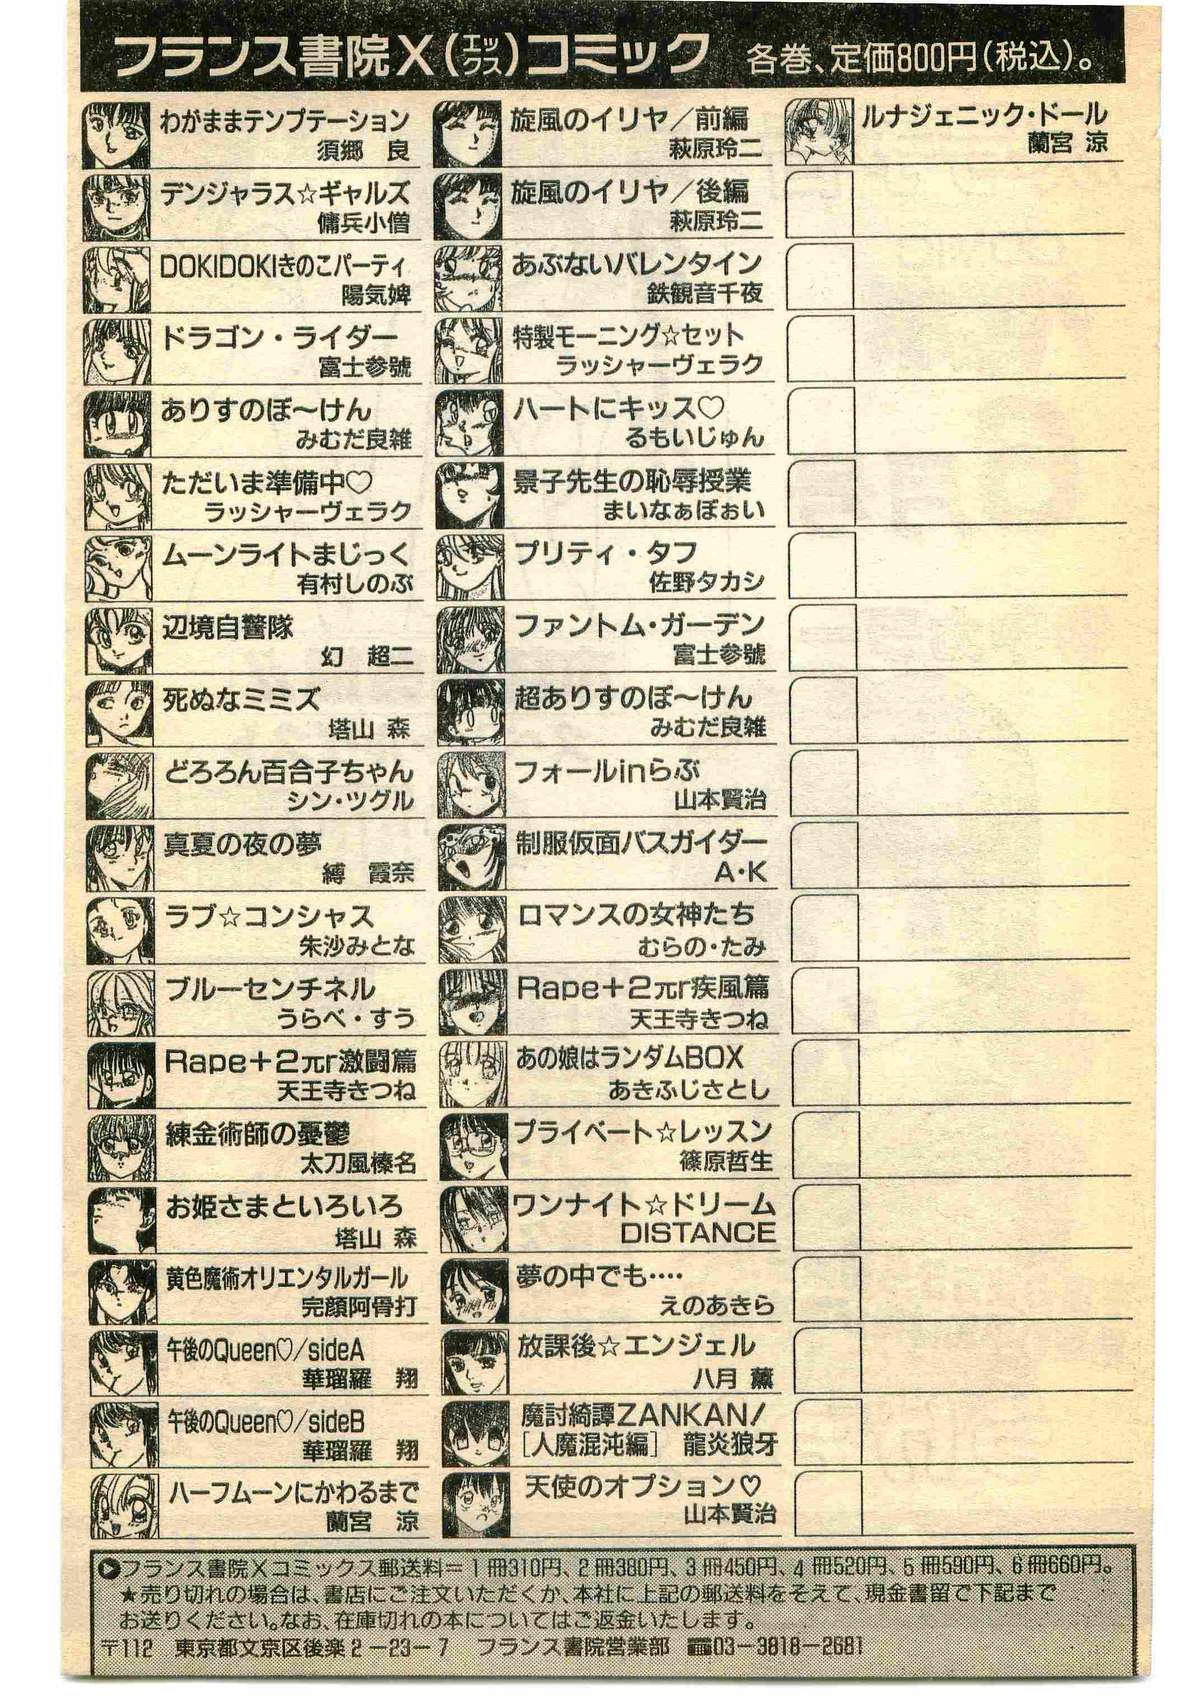 フランス書院X(エックス)コミック 各巻、定価800円(税込)。
わがままテンプテーション
須郷 良
デンジャラス☆ギャルズ
傭兵小僧
DOKIDOKIきのこパーティ
陽気婢
ドラゴン・ライダー
富士参號
ありすのぼ〜けん
みむだ良雑
ただいま準備中♡
ラッシャーヴェラク
ムーンライトまじっく
有村しのぶ
辺境自警隊
幻 超二
死ぬなミミズ
塔山 森
どろろん百合子ちゃん
シン・ツグル
真夏の夜の夢
縛 霞奈
ラブ☆コンシャス
朱沙みとな
ブルーセンチネル
うらべ・すう
Rape+2πr激闘篇
天王寺きつね
錬金術師の憂鬱
太刀風榛名
お姫さまといろいろ
塔山 森
黄色魔術オリエンタルガール
完顔阿骨打
午後のQueen♡/sideA
華瑠羅 翔
午後のQueen♡/sideB
華瑠羅 翔
ハーフムーンにかわるまで
蘭宮 涼
旋風のイリヤ/前編
萩原玲二
旋風のイリヤ/後編
萩原玲二
あぶないバレンタイン
鉄観音千夜
特製モーニング☆セット
ラッシャーヴェラク
ハートにキッス♡
るもいじゅん
景子先生の恥辱授業
まいなぁぼぉい
プリティ・タフ
佐野タカシ
ファントム・ガーデン
富士参號
超ありすのぼ〜けん
みむだ良雑
フォールinらぶ
山本賢治
制服仮面バスガイダー
A・K
ロマンスの女神たち
むらの・たみ
Rape+2πr疾風篇
天王寺きつね
あの娘はランダムBOX
あきふじさとし
プライベート☆レッスン
篠原哲生
ワンナイト☆ドリーム
DISTANCE
夢の中でも‥‥
えのあきら
放課後☆エンジェル
八月 薫
魔討綺譚ZANKAN!
[人魔混沌編] 龍炎狼牙
天使のオプション♡
山本賢治
ルナジェニック・ドール
蘭宮 涼
フランス書院Xコミックス郵送料=1冊310円、2冊380円、3冊450円、4冊520円、5冊590円、6冊660円。
★売り切れの場合は、書店にご注文いただくか、本社に上記の郵送料をそえて、現金書留で下記まで
お送りください。なお、在庫切れの本についてはご返金いたします。
〒112 東京都文京区後楽2-23-7 フランス書院営業部 ☎03-3818-2681